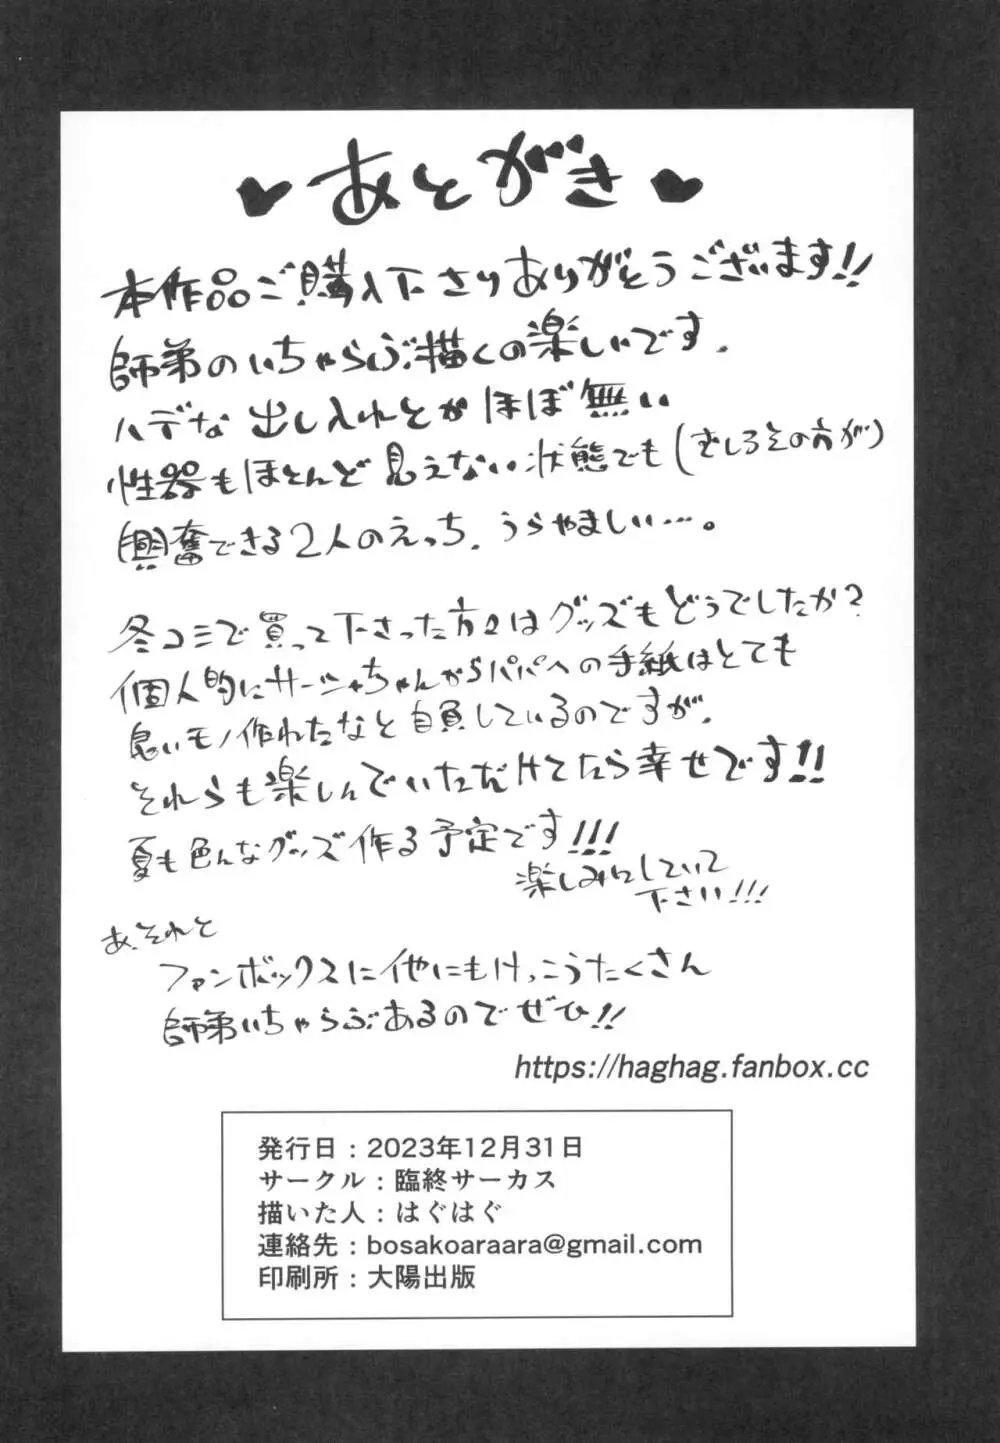 ♥あとがき♥
本作品ご購入下さりありがとうございます!!
師弟のいちゃらぶ描くの楽しいです。
ハデな出し入れとかほぼ無い
性器もほとんど見えない状態でも(むしろその方が)
興奮できる2人のえっち、うらやましい…。
冬コミで買って下さった方々はグッズもどうでしたか?
個人的にサーシャちゃんからパパへの手紙はとても
良いモノ作れたなと自負しているのですが、
それらも楽しんでいただけてたら幸せです!!
夏も色んなグッズ作る予定です!!!
楽しみにしていて
下さい!!!
あ、それと
ファンボックスに他にもけっこうたくさん
師弟いちゃらぶあるのでぜひ!!
https://haghag.fanbox.cc
発行日：2023年12月31日
サークル：臨終サーカス
描いた人：はぐはぐ
連絡先：bosakoaraara@gmail.com
印刷所：大陽出版